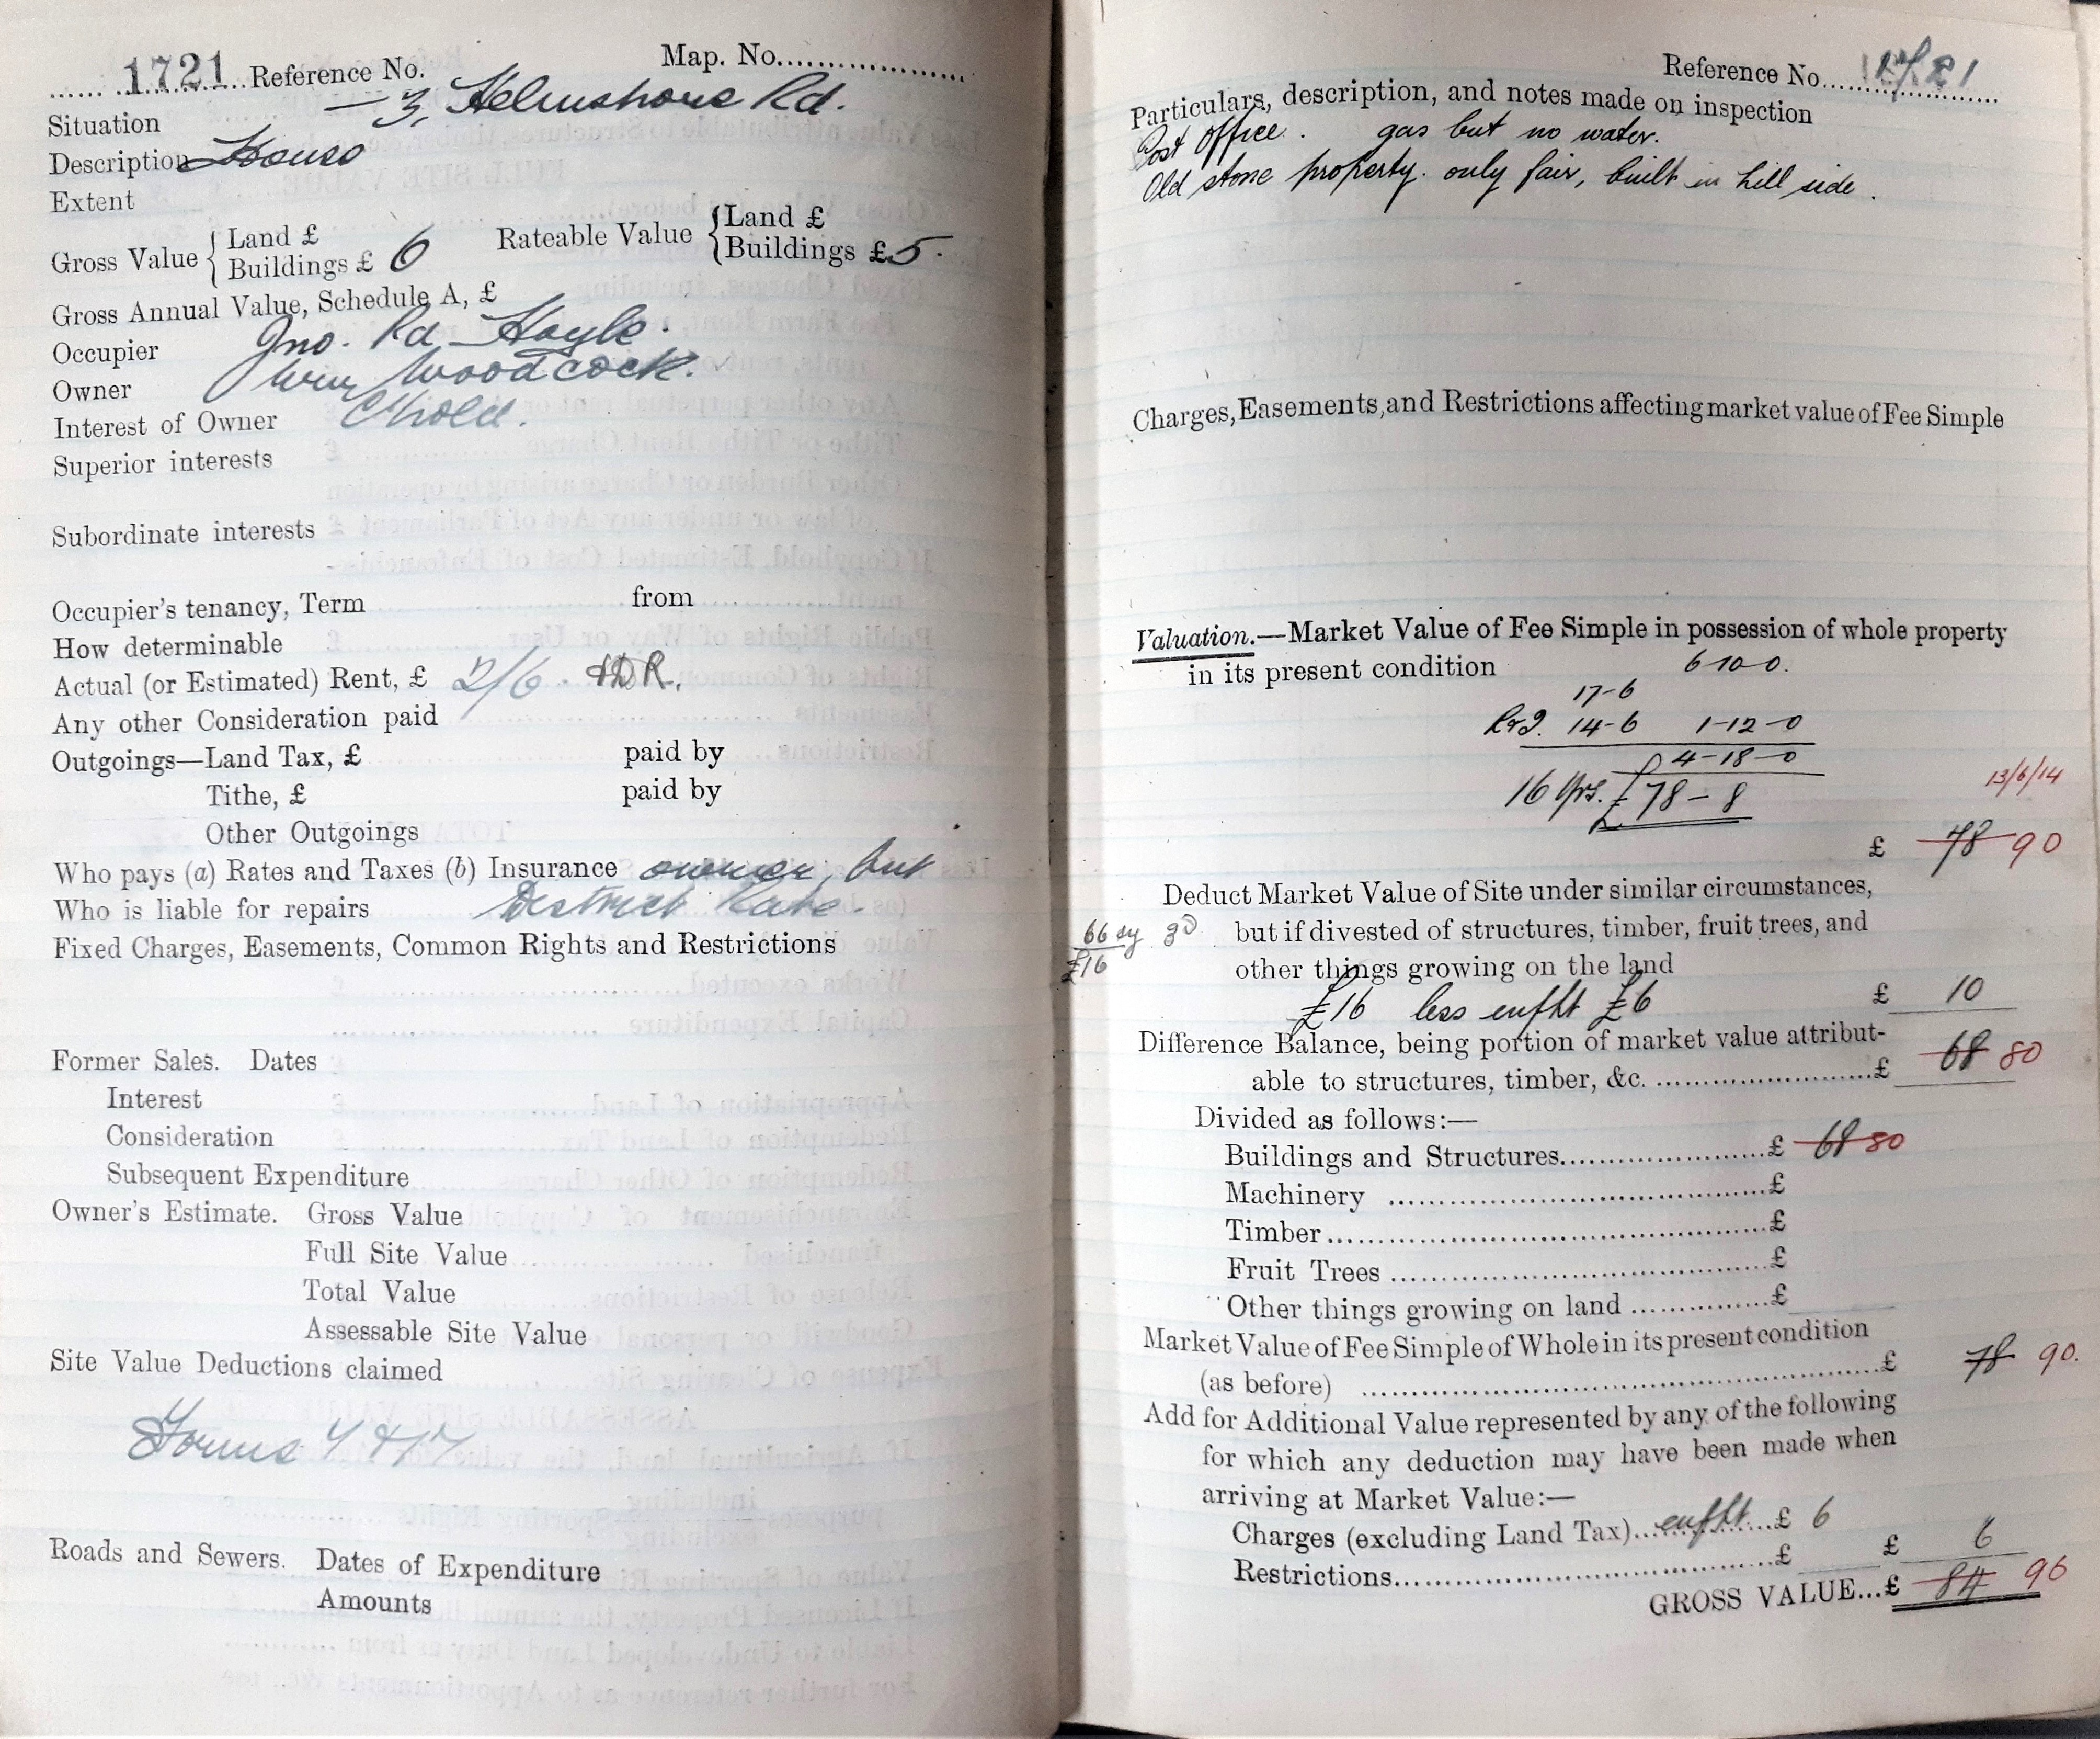 1721 Reference No. Map. No.
Situation 3, Helmshore Rd.
Description House
Extent
Gross Value { Land £
Buildings £ 6
Rateable Value { Land £
Buildings £ 5.
Gross Annual Value, Schedule A, £
Occupier Jno. Rd Hoyle.
Owner Wm Woodcock.
Interest of Owner C'hold.
Superior interests
Subordinate interests
Occupier's tenancy, Term from
How determinable
Actual (or Estimated) Rent, £ 2/6. + D R.
Any other Consideration paid
Outgoings—Land Tax, £ paid by
Tithe, £ paid by
Other Outgoings
Who pays (a) Rates and Taxes (b) Insurance owner, but
Who is liable for repairs District Rate.
Fixed Charges, Easements, Common Rights and Restrictions
Former Sales. Dates
Interest
Consideration
Subsequent Expenditure
Owner's Estimate. Gross Value
Full Site Value
Total Value
Assessable Site Value
Site Value Deductions claimed
Forms 4 & 17
Roads and Sewers. Dates of Expenditure
Amounts
Reference No. 1721
Particulars, description, and notes made on inspection
Post Office. gas but no water.
Old stone property. only fair, built in hill side.
Charges, Easements, and Restrictions affecting market value of Fee Simple
Valuation.—Market Value of Fee Simple in possession of whole property
in its present condition 6-10-0.
17-6
14-6 1-12-0
£ 4-18-0
16 Yrs. £78-8
13/6/14
£ 78 90
Deduct Market Value of Site under similar circumstances,
66 sy 3d but if divested of structures, timber, fruit trees, and
£16 other things growing on the land
£16 less enfht £6 £ 10
Difference Balance, being portion of market value attribut-
able to structures, timber, &c. £ 68 80
Divided as follows:—
Buildings and Structures £ 68 80
Machinery £
Timber £
Fruit Trees £
Other things growing on land £
Market Value of Fee Simple of Whole in its present condition
(as before) £ 78 90.
Add for Additional Value represented by any of the following
for which any deduction may have been made when
arriving at Market Value:—
Charges (excluding Land Tax) enfht £ 6
Restrictions £ £ 6
GROSS VALUE...£ 84 96